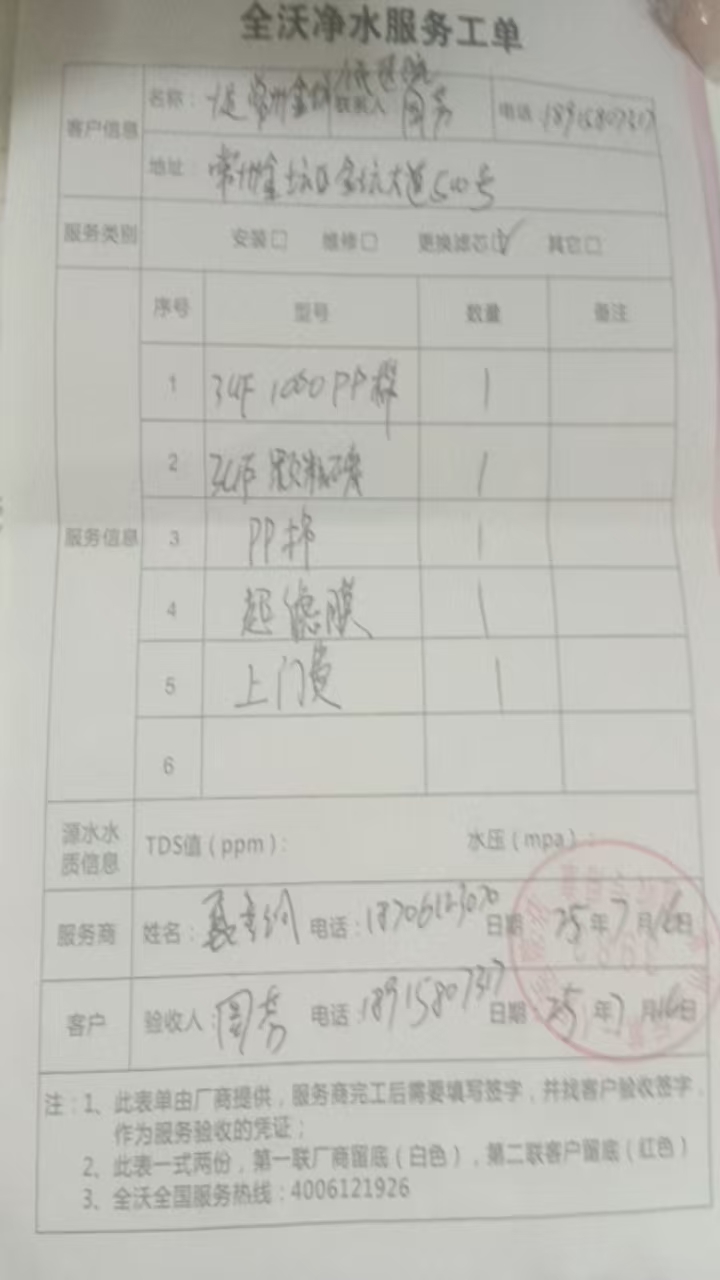 全沃净水服务工单
客户信息 名称： 联系人 周芳 电话 18915807317
地址： 常州金坛区金坛大道500号
服务类别 安装□ 维修□ 更换滤芯☑ 其它□
服务信息 序号 型号 数量 备注
1 3UF 1000 PP棉 1
2 3UF 颗粒碳 1
3 PP棉 1
4 超滤膜 1
5 上门费 1
6
源水水质信息 TDS值（ppm）： 水压（mpa）：
服务商 姓名： 电话：18706123070 日期：25年7月16日
客户 验收人：周芳 电话：18915807317 日期：25年7月16日
注：1、此表单由厂商提供，服务商完工后需要填写签字，并找客户验收签字，
作为服务验收的凭证；
2、此表一式两份，第一联厂商留底（白色），第二联客户留底（红色）
3、全沃全国服务热线：4006121926